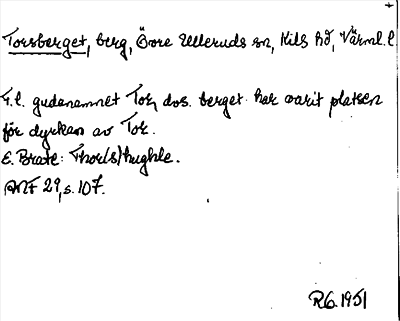 Torsberget, berg, Övre Ulleruds sn, Kils hd, Värml. l.
T.l. gudenamnet Tor, dvs. berget har varit platsen
för dyrkan av Tor.
E. Brate: Thor(s)hughle.
ANF 29, s. 107.
RG. 1951